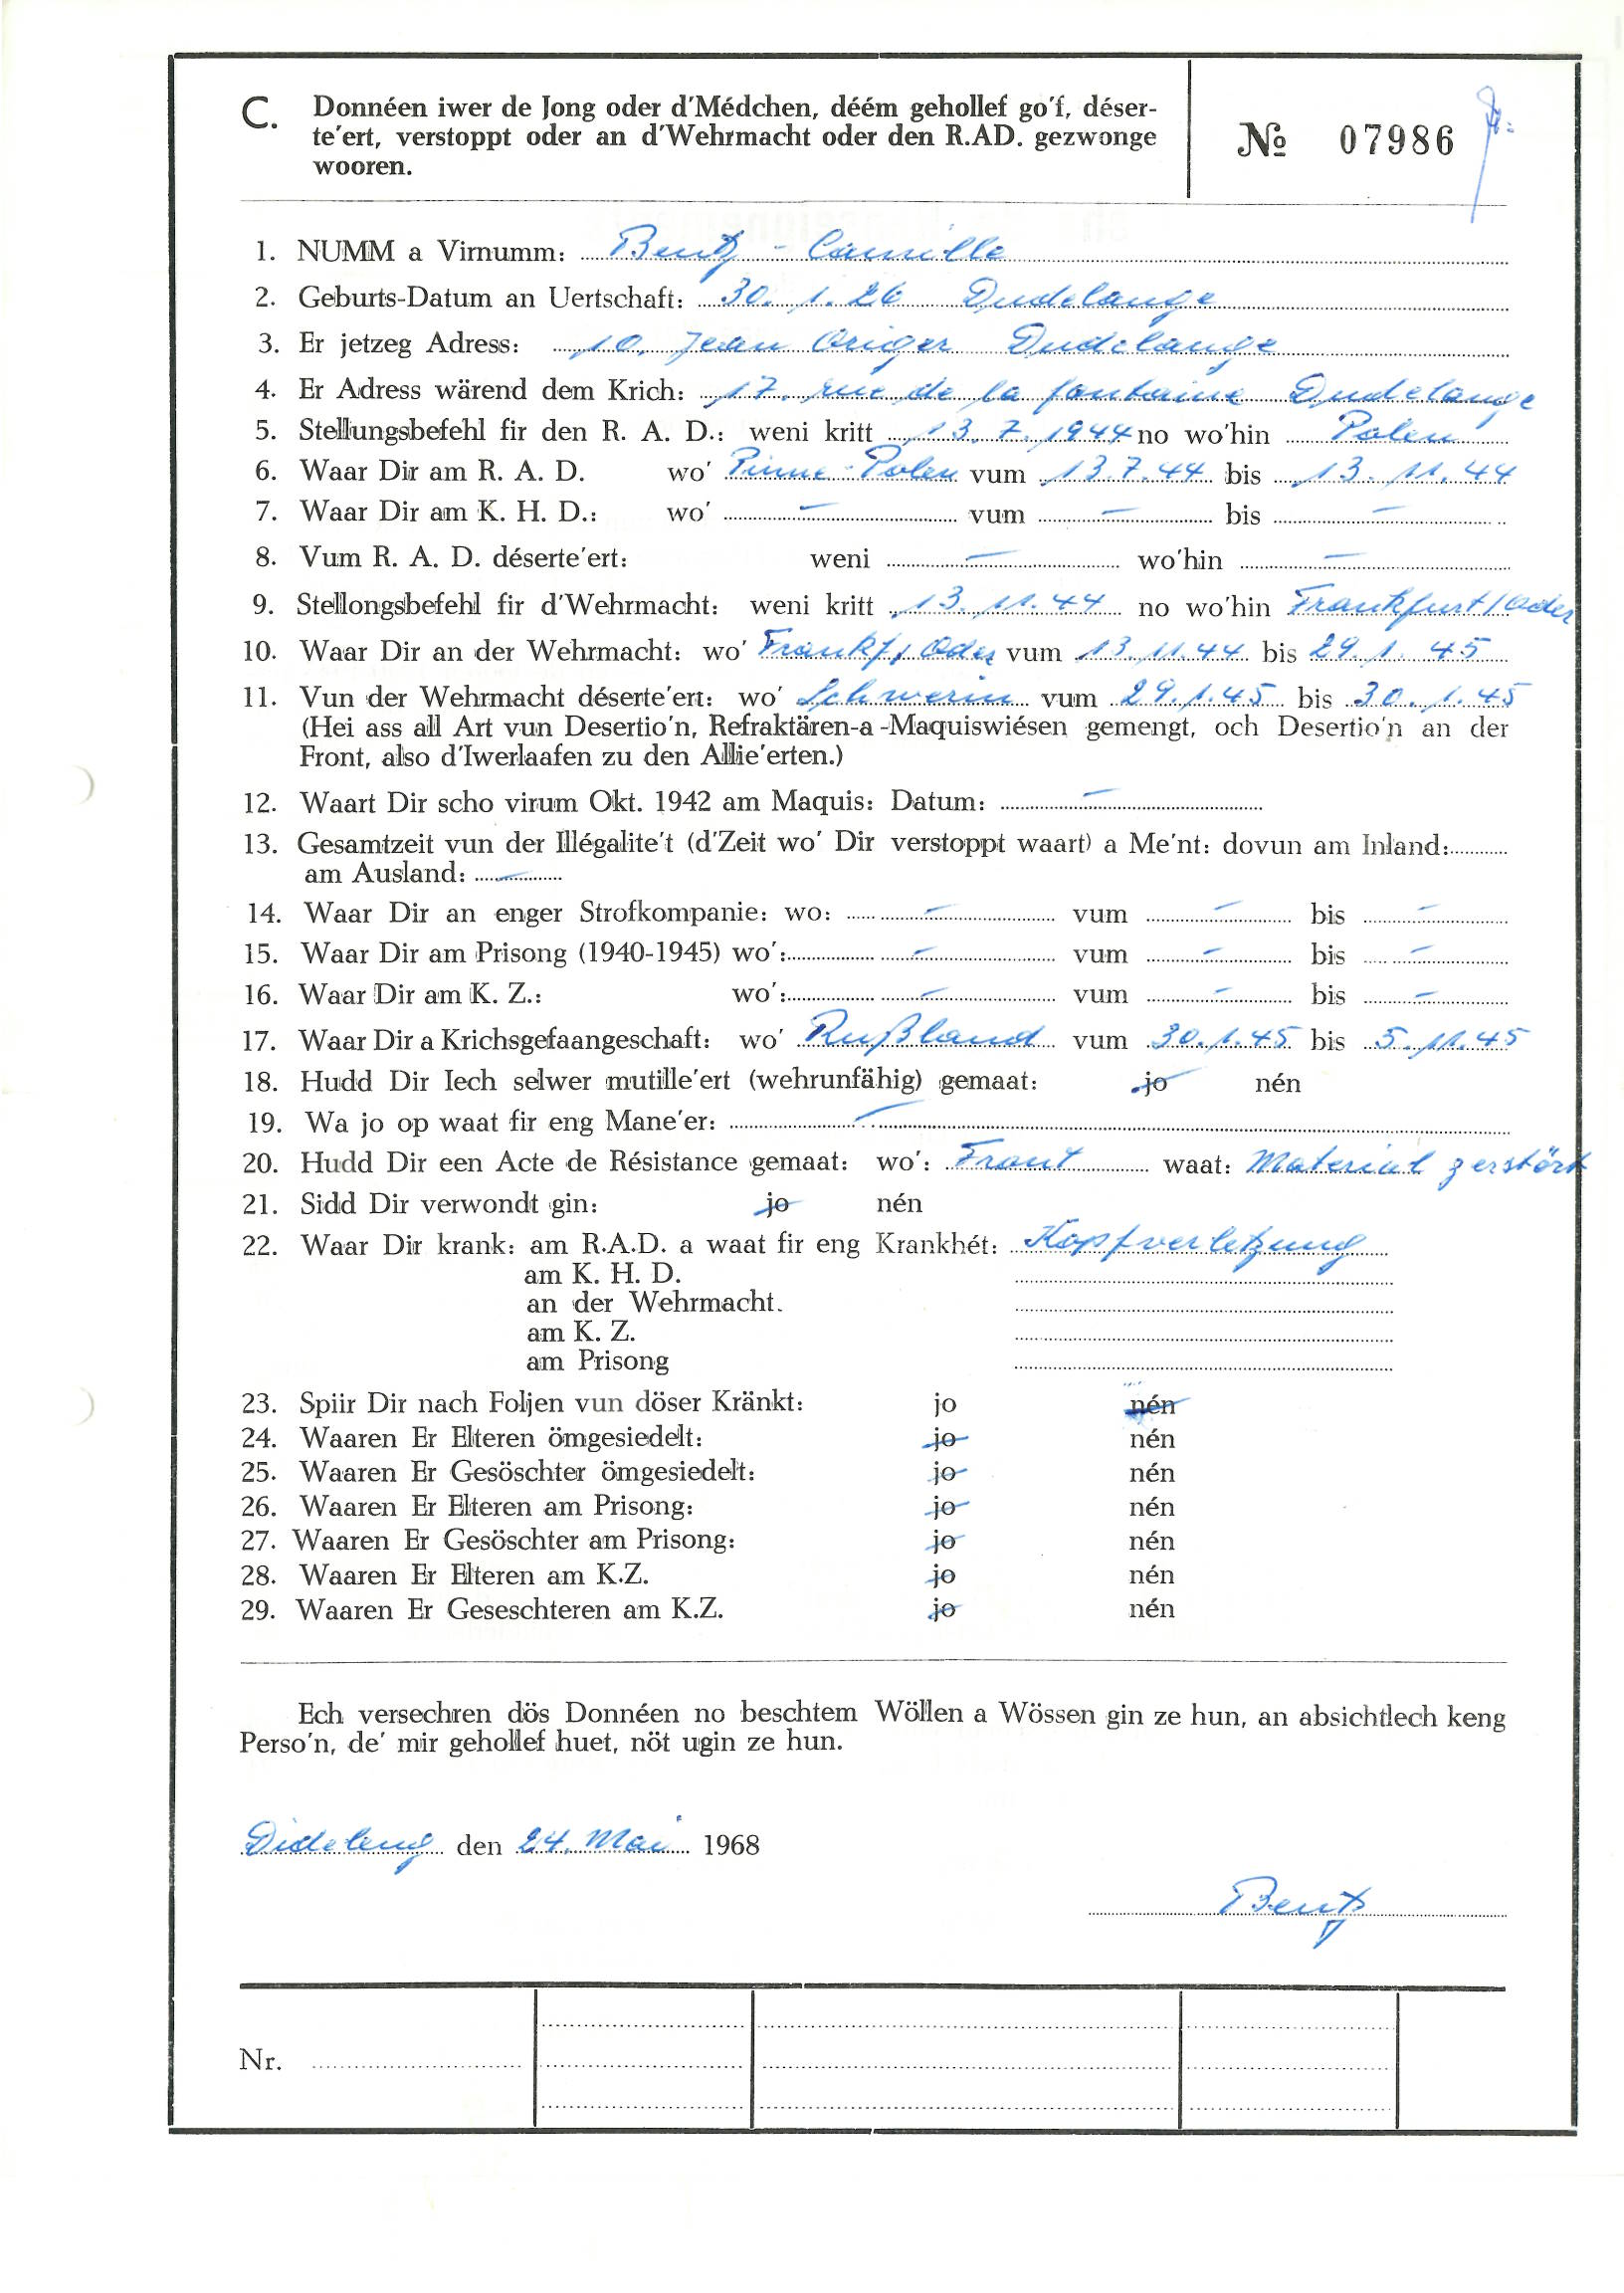 C. Donnéen iwer de Jong oder d'Médchen, déém gehollef go'f, déser-
te'ert, verstoppt oder an d'Wehrmacht oder den R.AD. gezwonge
wooren.
№ 07986
1. NUMM a Virnumm: Bentz - Camille
2. Geburts-Datum an Uertschaft: 30. 1. 26 Dudelange
3. Er jetzeg Adress: 10, Jean Origer Dudelange
4. Er Adress wärend dem Krich: 17. rue de la fontaine Dudelange
5. Stellungsbefehl fir den R. A. D.: weni kritt 13. 7. 1944 no wo'hin Polen
6. Waar Dir am R. A. D. wo' Pinne - Polen vum 13.7.44 bis 13. 11. 44
7. Waar Dir am K. H. D.: wo' — vum — bis —
8. Vum R. A. D. déserte'ert: weni — wo'hin —
9. Stellongsbefehl fir d'Wehrmacht: weni kritt 13. 11. 44 no wo'hin Frankfurt/Oder
10. Waar Dir an der Wehrmacht: wo' Frankf/Oder vum 13.11.44 bis 29. 1. 45
11. Vun der Wehrmacht déserte'ert: wo' Schwerin vum 29.1.45 bis 30. 1. 45
(Hei ass all Art vun Desertio'n, Refraktären-a-Maquiswiésen gemengt, och Desertio'n an der
Front, also d'Iwerlaafen zu den Allie'erten.)
12. Waart Dir scho virum Okt. 1942 am Maquis: Datum: —
13. Gesamtzeit vun der Illégalite't (d'Zeit wo' Dir verstoppt waart) a Me'nt: dovun am Inland:
am Ausland: —
14. Waar Dir an enger Strofkompanie: wo: — vum — bis —
15. Waar Dir am Prisong (1940-1945) wo': — vum — bis —
16. Waar Dir am K. Z.: wo': — vum — bis —
17. Waar Dir a Krichsgefaangeschaft: wo' Rußland vum 30.1.45 bis 5. 11. 45
18. Hudd Dir Iech selwer mutille'ert (wehrunfähig) gemaat: jo nén
19. Wa jo op waat fir eng Mane'er: —
20. Hudd Dir een Acte de Résistance gemaat: wo': Front waat: Material zerstört
21. Sidd Dir verwondt gin: jo nén
22. Waar Dir krank: am R.A.D. a waat fir eng Krankhét: Kopfverletzung
am K. H. D.
an der Wehrmacht.
am K. Z.
am Prisong
23. Spiir Dir nach Foljen vun döser Kränkt: jo nén
24. Waaren Er Elteren ömgesiedelt: jo nén
25. Waaren Er Gesöschter ömgesiedelt: jo nén
26. Waaren Er Elteren am Prisong: jo nén
27. Waaren Er Gesöschter am Prisong: jo nén
28. Waaren Er Elteren am K.Z. jo nén
29. Waaren Er Geseschteren am K.Z. jo nén
Ech versechren dös Donnéen no beschtem Wöllen a Wössen gin ze hun, an absichtlech keng
Perso'n, de' mir gehollef huet, nöt ugin ze hun.
Dideleng den 24. Mai 1968
Bentz
Nr.